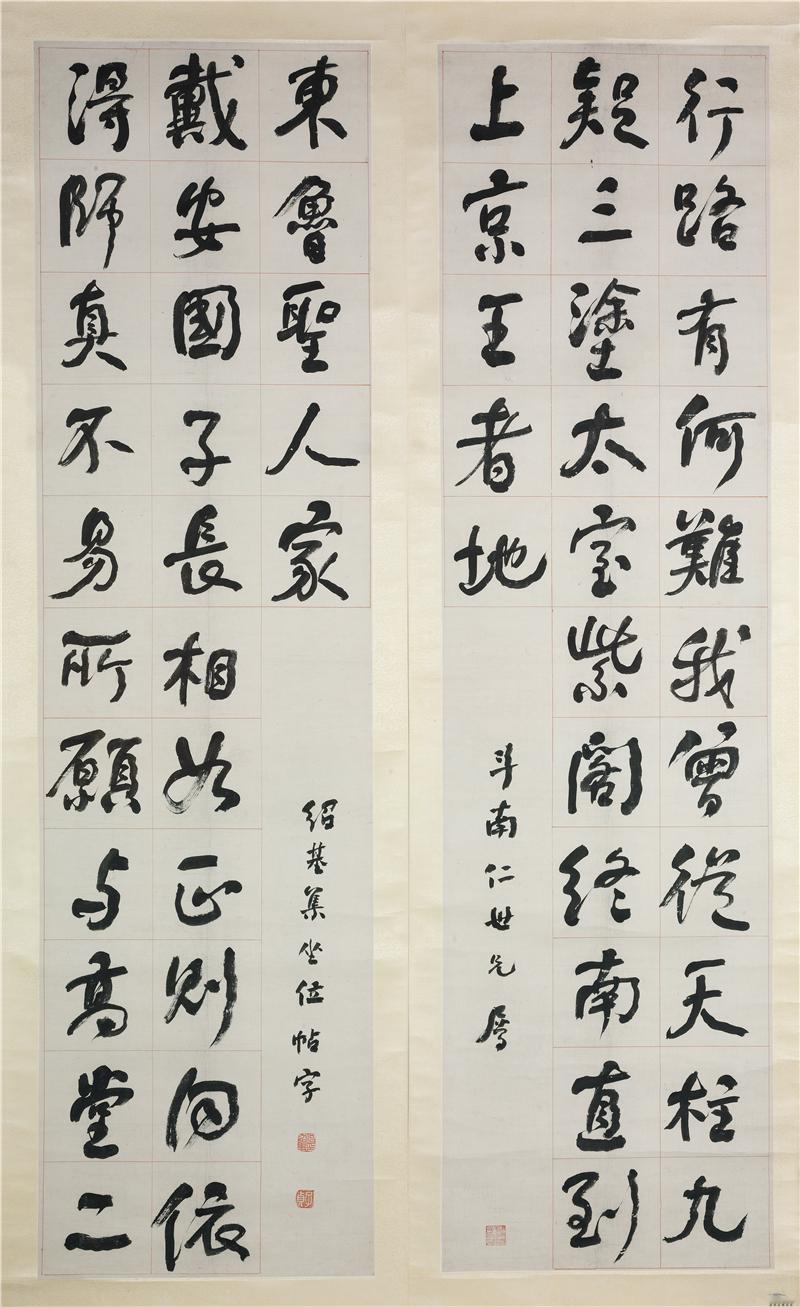 行路有何難我曾從天柱九
疑三塗太室紫閣終南直到
上京王者地
斗南仁世兄屬
得師真不易所願与高堂二
戴安國子長相如正則向依
東魯聖人家
紹基集坐位帖字